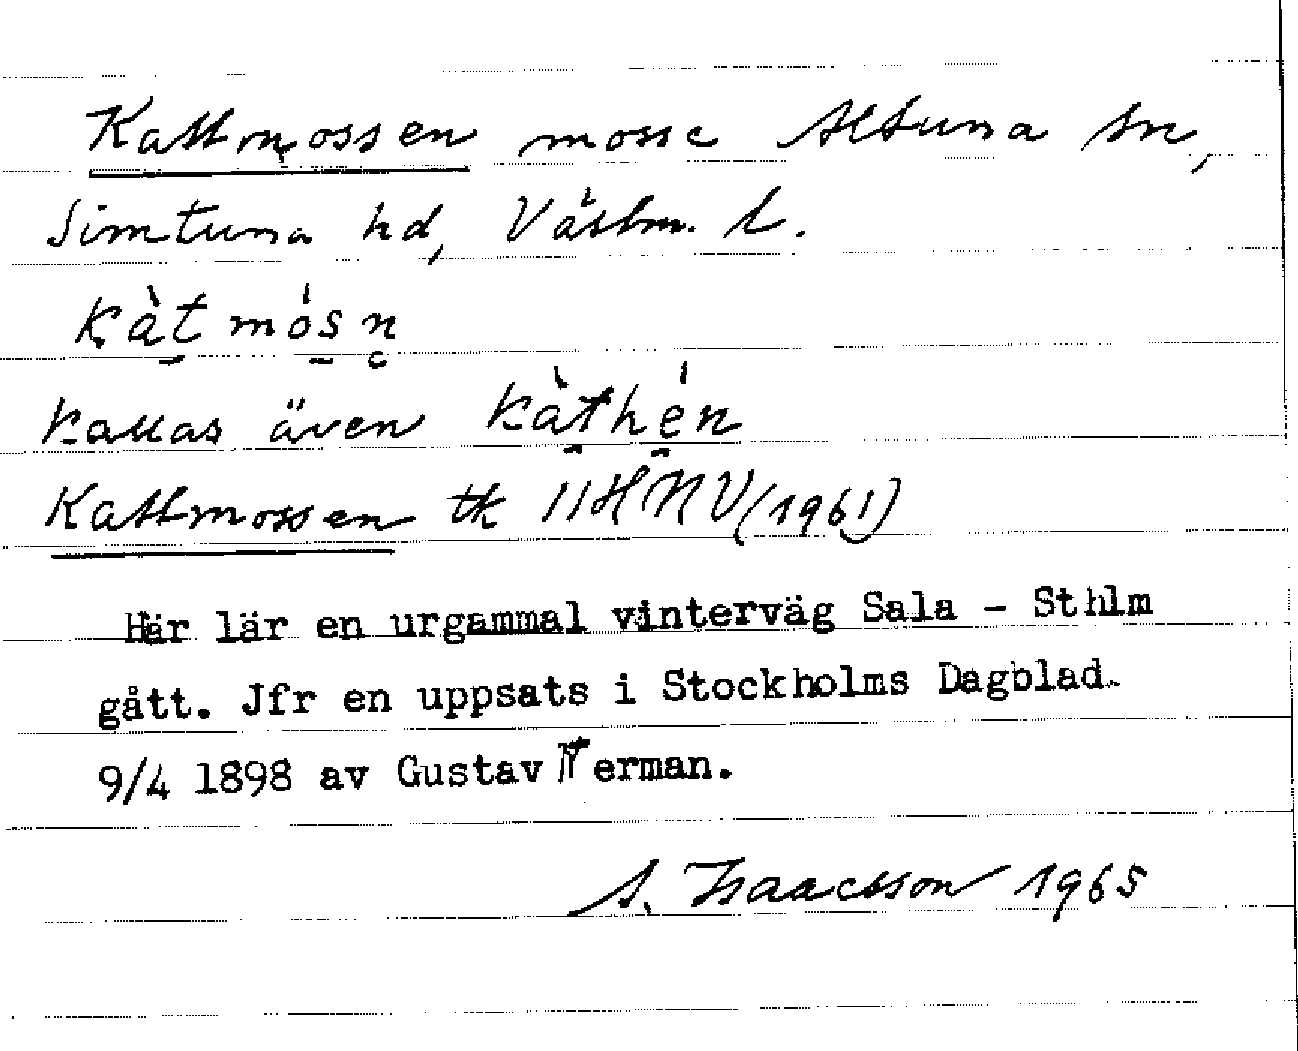 Kattmossen mosse Altuna sn,
Simtuna hd, Västm. l.
kàt mósn̥
kallas även kàthén
Kattmossen tk 11H NV (1961)
Här lär en urgammal vinterväg Sala - Sthlm
gått. Jfr en uppsats i Stockholms Dagblad.
9/4 1898 av Gustav Nerman.
A. Isaacsson 1965